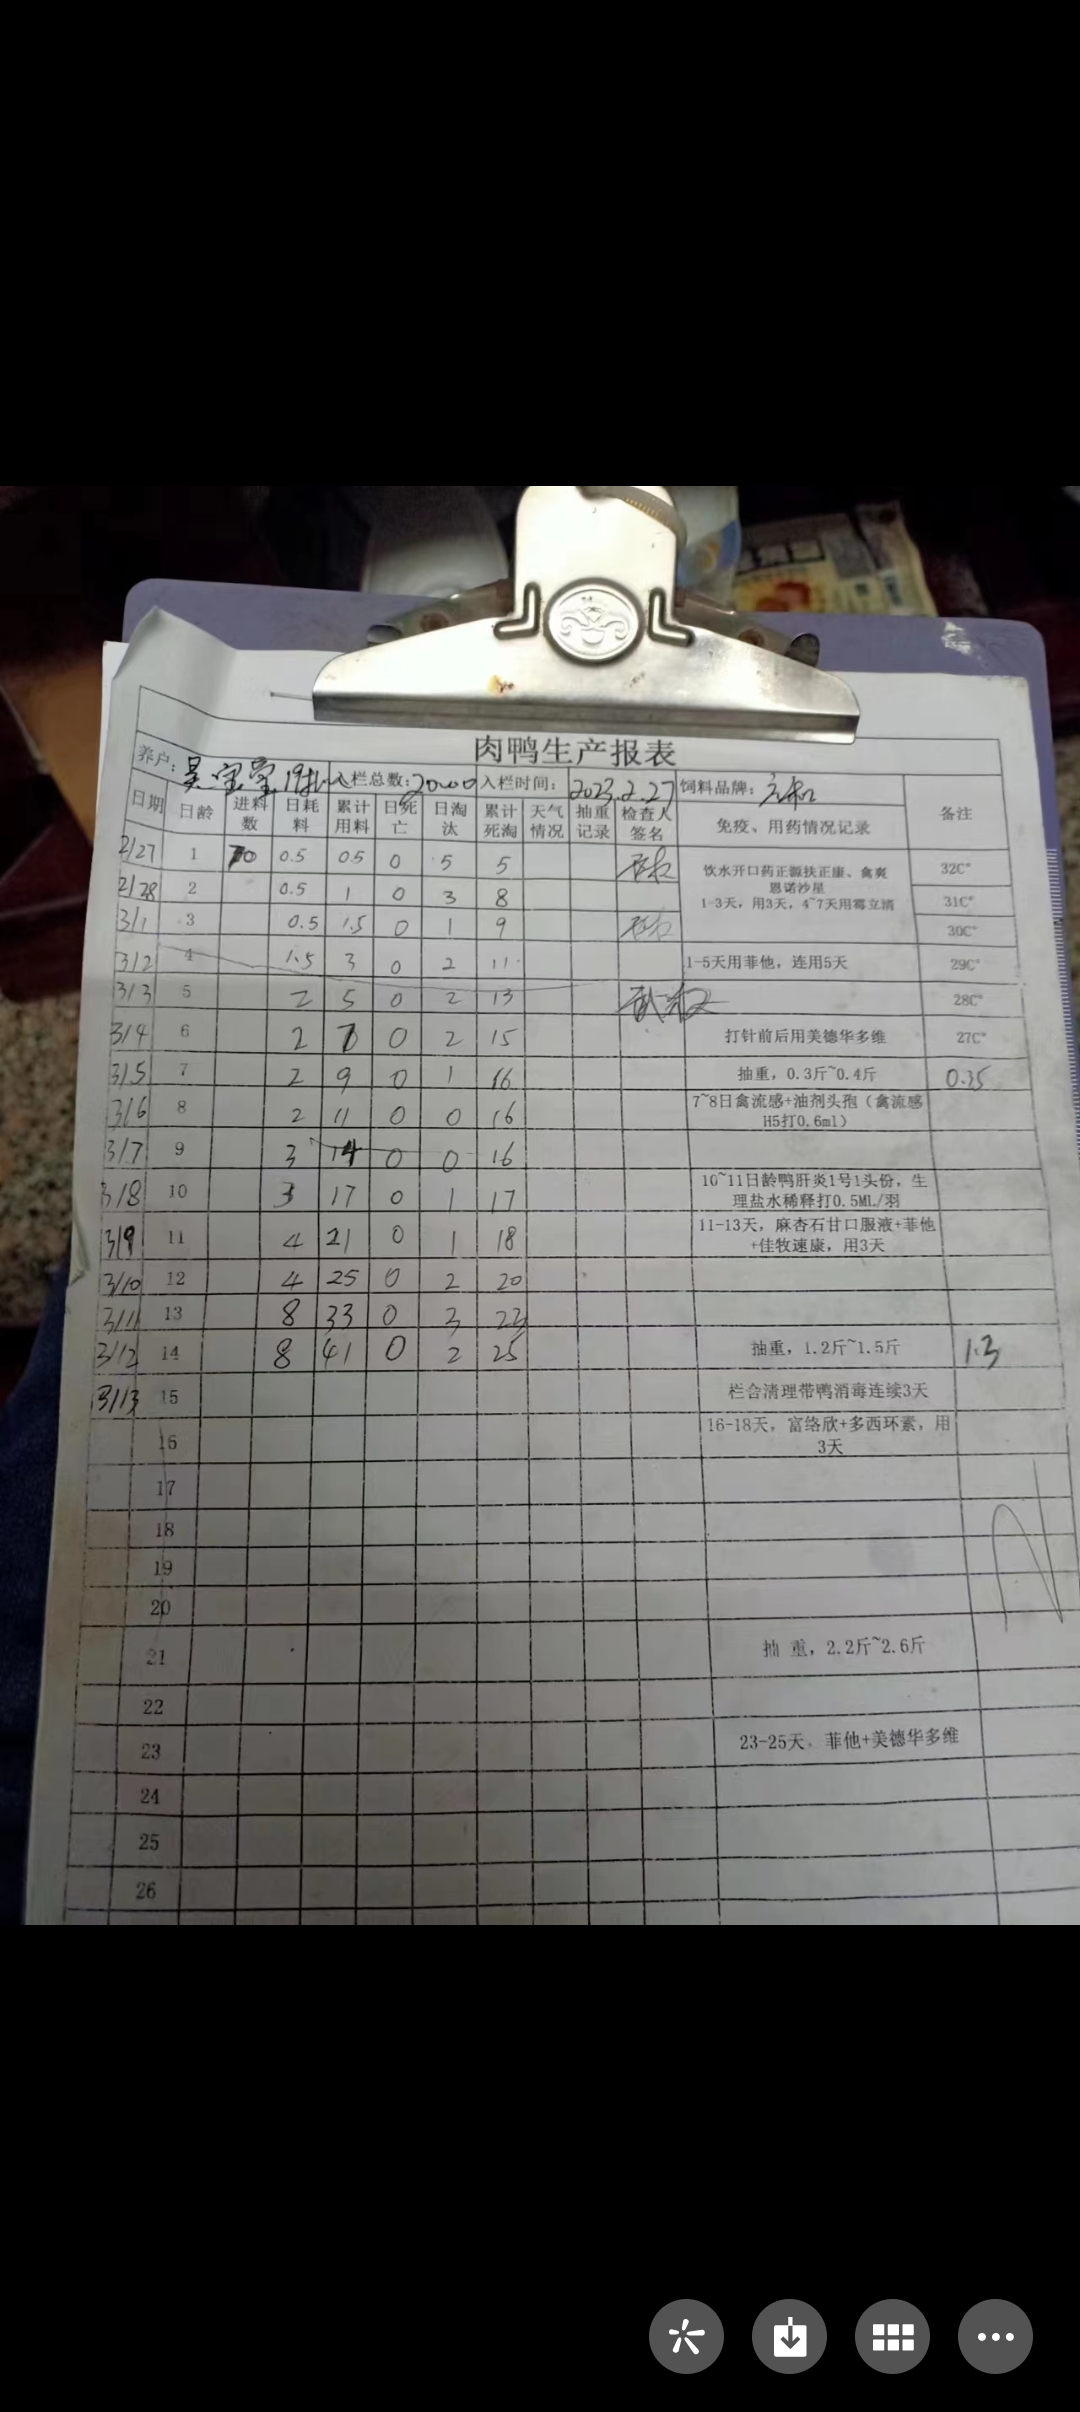 肉鸭生产报表
养户：吴宝 入栏总数：20000 入栏时间： 2023.2.27 饲料品牌：
日期 日龄 进料数 日耗料 累计用料 日死亡 日淘汰 累计死淘 天气情况 抽重记录 检查人签名 免疫、用药情况记录 备注
2/27 1 70 0.5 0.5 0 5 5 饮水开口药正源扶正康、禽爽 32C°
恩诺沙星
2/28 2 0.5 1 0 3 8 1-3天，用3天，4~7天用霉立清 31C°
3/1 3 0.5 1.5 0 1 9 30C°
3/2 4 1.5 3 0 2 11 1-5天用菲他，连用5天 29C°
3/3 5 2 5 0 2 13 28C°
3/4 6 2 7 0 2 15 打针前后用美德华多维 27C°
3/5 7 2 9 0 1 16 抽重，0.3斤~0.4斤 0.35
3/6 8 2 11 0 0 16 7~8日禽流感+油剂头孢（禽流感
H5打0.6ml）
3/7 9 3 14 0 0 16
3/8 10 3 17 0 1 17 10~11日龄鸭肝炎1号1头份，生
理盐水稀释打0.5ML/羽
3/9 11 4 21 0 1 18 11-13天，麻杏石甘口服液+菲他
+佳牧速康，用3天
3/10 12 4 25 0 2 20
3/11 13 8 33 0 3 23
3/12 14 8 41 0 2 25 抽重，1.2斤~1.5斤 1.3
3/13 15 栏合清理带鸭消毒连续3天
16 16-18天，富络欣+多西环素，用
3天
17
18
19
20
21 抽 重，2.2斤~2.6斤
22
23 23-25天，菲他+美德华多维
24
25
26